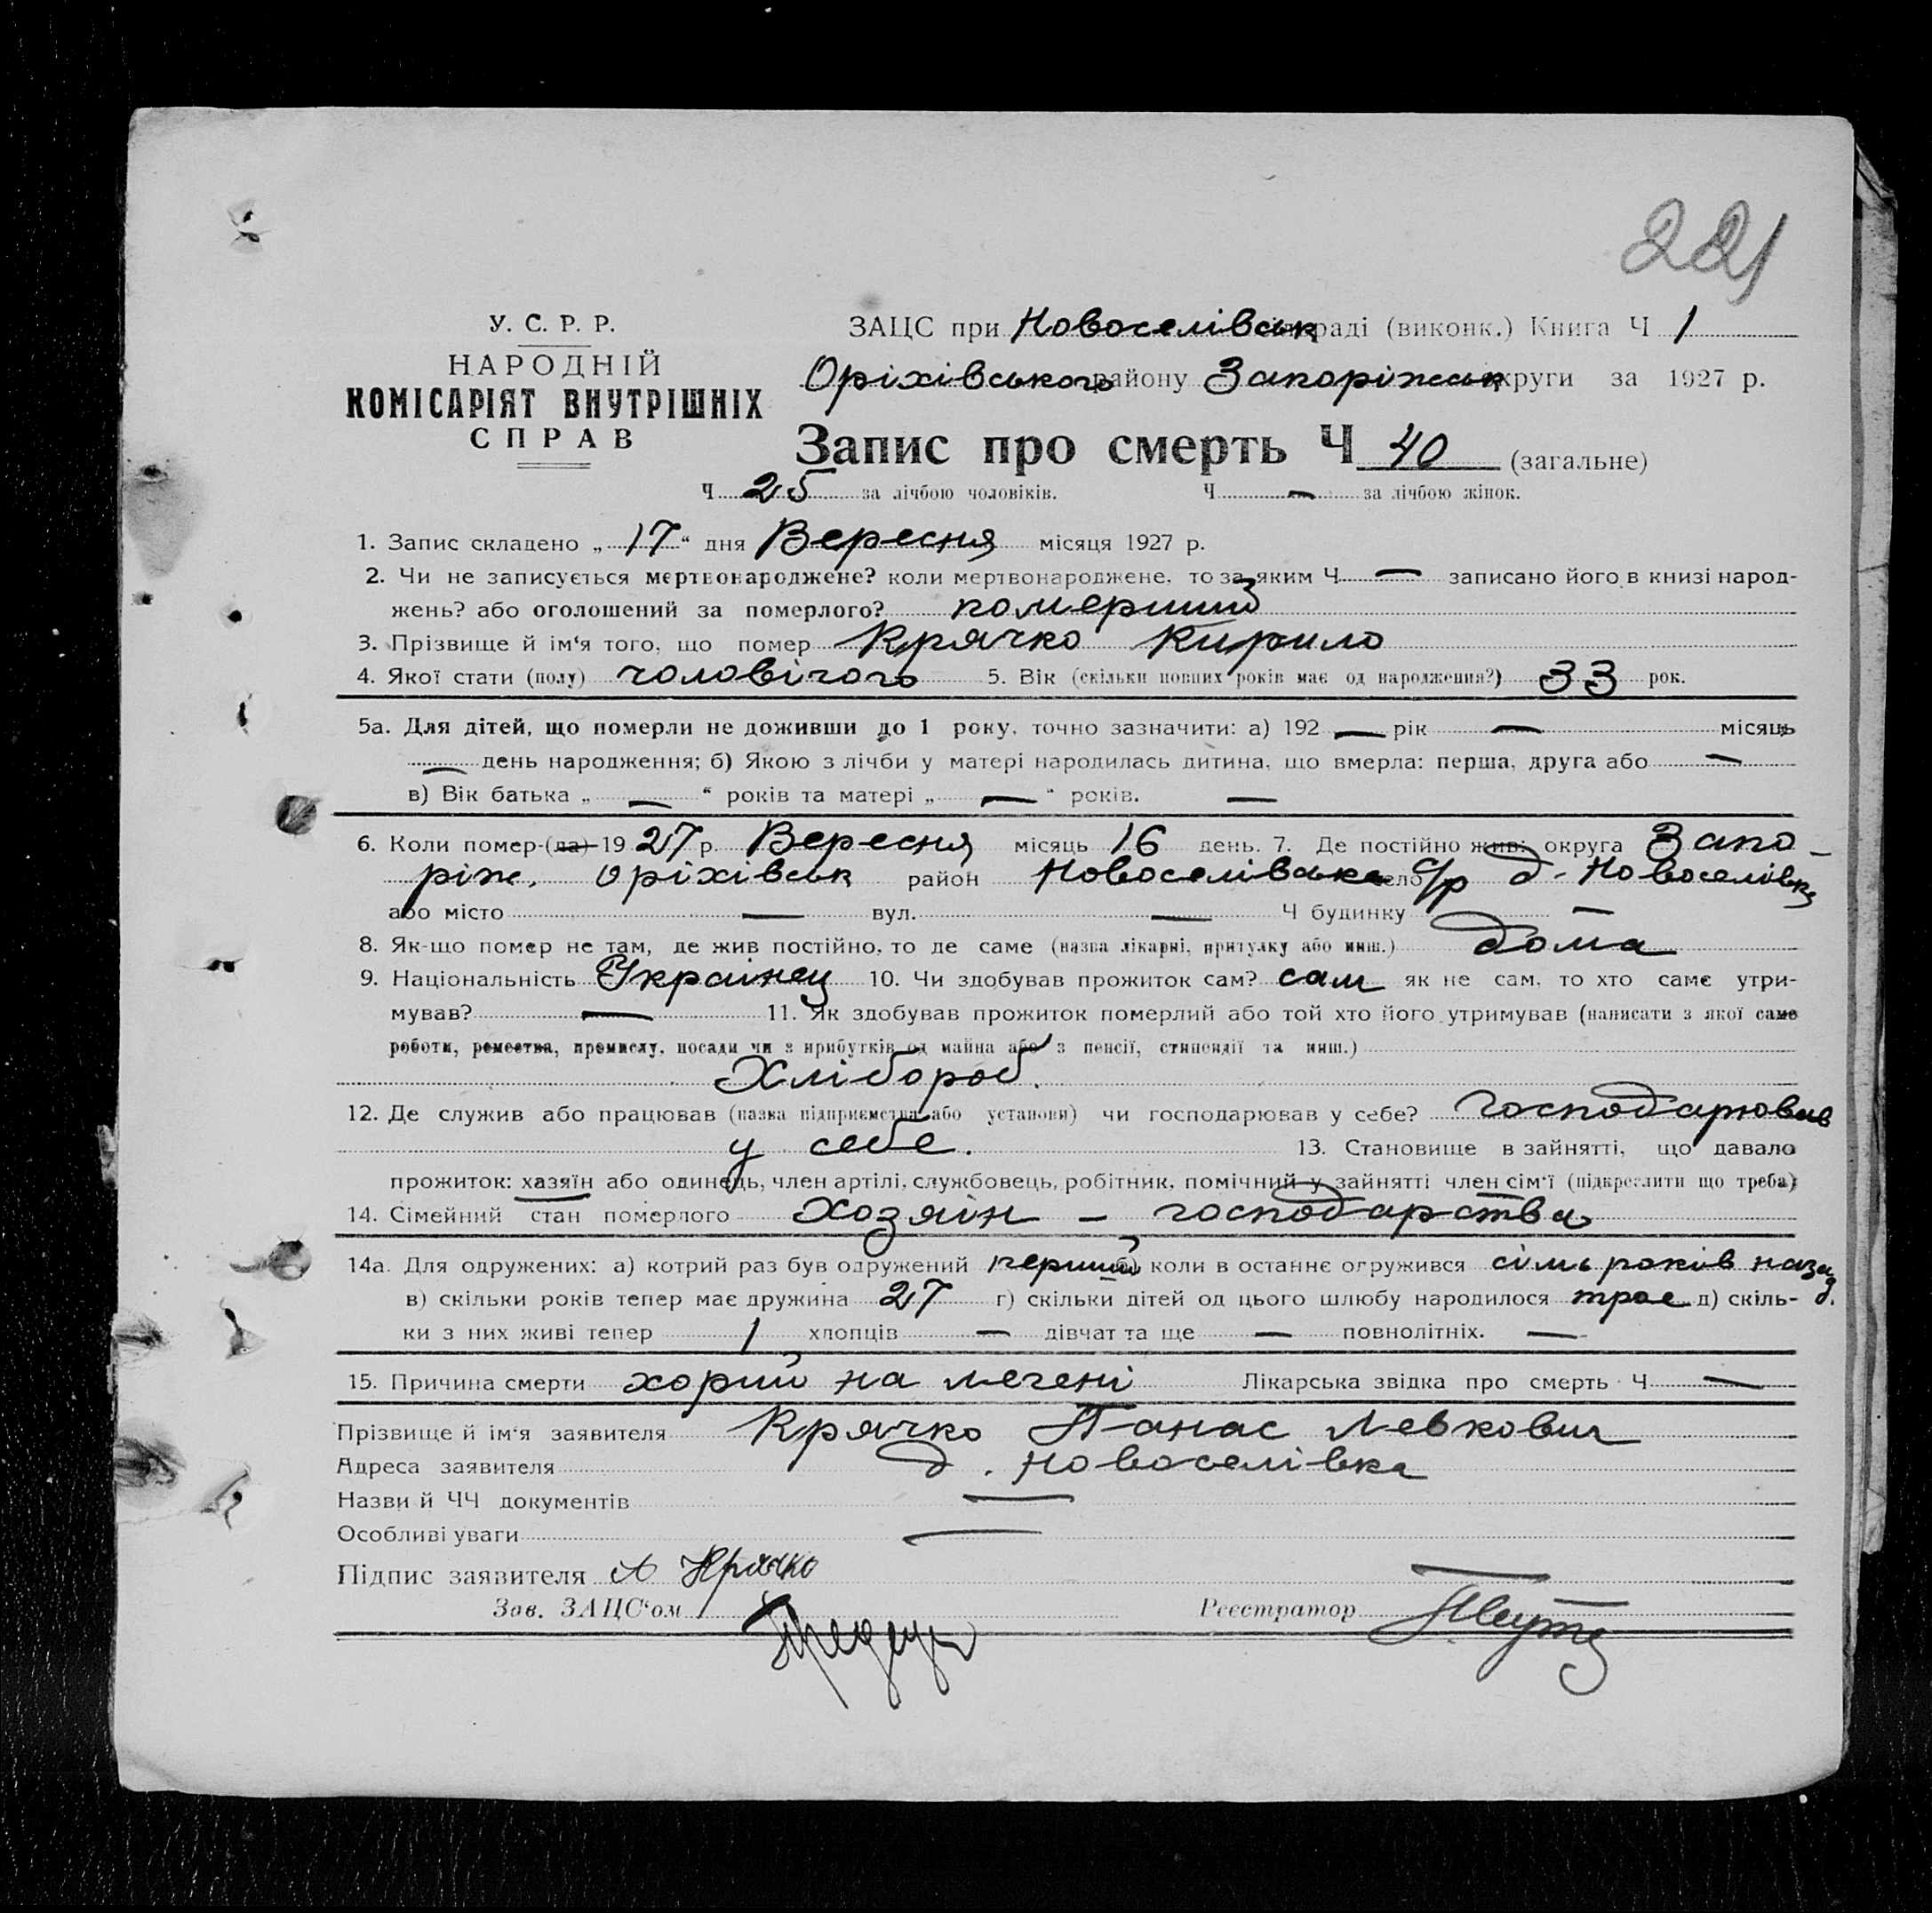 221
У. С. Р. Р.
НАРОДНІЙ
КОМІСАРІЯТ ВНУТРІШНІХ
СПРАВ
ЗАЦС при Новоселівськ раді (виконк.) Книга Ч 1
Оріхівського району Запоріжськ округи за 1927 р.
Запис про смерть Ч 40 (загальне)
Ч 25 за лічбою чоловіків. Ч — за лічбою жінок.
1. Запис складено „17“ дня Вересня місяця 1927 р.
2. Чи не записується мертвонароджене? коли мертвонароджене, то за яким Ч — записано його в книзі народ-
жень? або оголошений за померлого? померший
3. Прізвище й ім‘я того, що помер Крячко Кирило
4. Якої стати (полу) чоловічого 5. Вік (скільки повних років має од народження?) 33 рок.
5а. Для дітей, що померли не доживши до 1 року, точно зазначити: а) 192 — рік — місяць
— день народження; б) Якою з лічби у матері народилась дитина, що вмерла: перша, друга або —
в) Вік батька „ — “ років та матері „ — “ років. —
6. Коли помер-(ла) 1927 р. Вересня місяць 16 день. 7. Де постійно жив: округа Запо-
ріж. Оріхівськ район Новоселівська село с/р д. Новоселівка
або місто — вул. — Ч будинку —
8. Як-що помер не там, де жив постійно, то де саме (назва лікарні, притулку або инш.) дома
9. Національність Українец 10. Чи здобував прожиток сам? сам як не сам, то хто саме утри-
мував? — 11. Як здобував прожиток померлий або той хто його утримував (написати з якої саме
роботи, ремества, промислу, посади чи з прибутків од майна або з пенсії, стипендії та инш.)
Хлібороб.
12. Де служив або працював (назва підприємства або установи) чи господарював у себе? господарював
у себе. 13. Становище в зайнятті, що давало
прожиток: хазяїн або одинець, член артілі, службовець, робітник, помічний у зайнятті член сім‘ї (підкреслити що треба)
14. Сімейний стан померлого Хозяїн – господарства
14а. Для одружених: а) котрий раз був одружений перший б) коли в останнє одружився сімь років назад.
в) скільки років тепер має дружина 27 г) скільки дітей од цього шлюбу народилося трое д) скіль-
ки з них живі тепер 1 хлопців — дівчат та ще — повнолітніх. —
15. Причина смерти хорий на лечені Лікарська звідка про смерть Ч —
Прізвище й ім‘я заявителя Крячко Панас Левкович
Адреса заявителя д. Новоселівка
Назви й ЧЧ документів —
Особливі уваги —
Підпис заявителя А Крячко
Зав. ЗАЦС‘ом Реєстратор